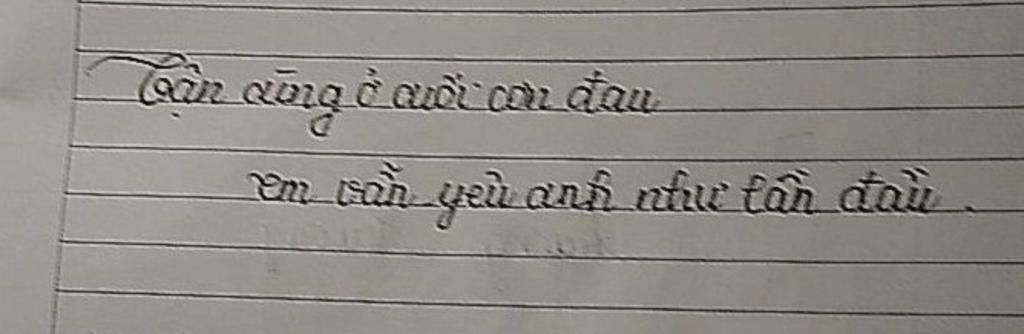 Tận cùng ở cuối cơn đau
em vẫn yêu anh như lần đầu.